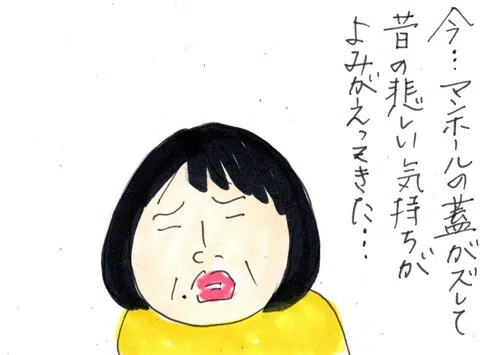 今…マンホールの蓋がズレて
昔の悲しい気持ちが
よみがえってきた…